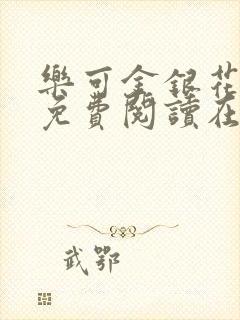 樂可金銀花
免費閱讀在
武鄂